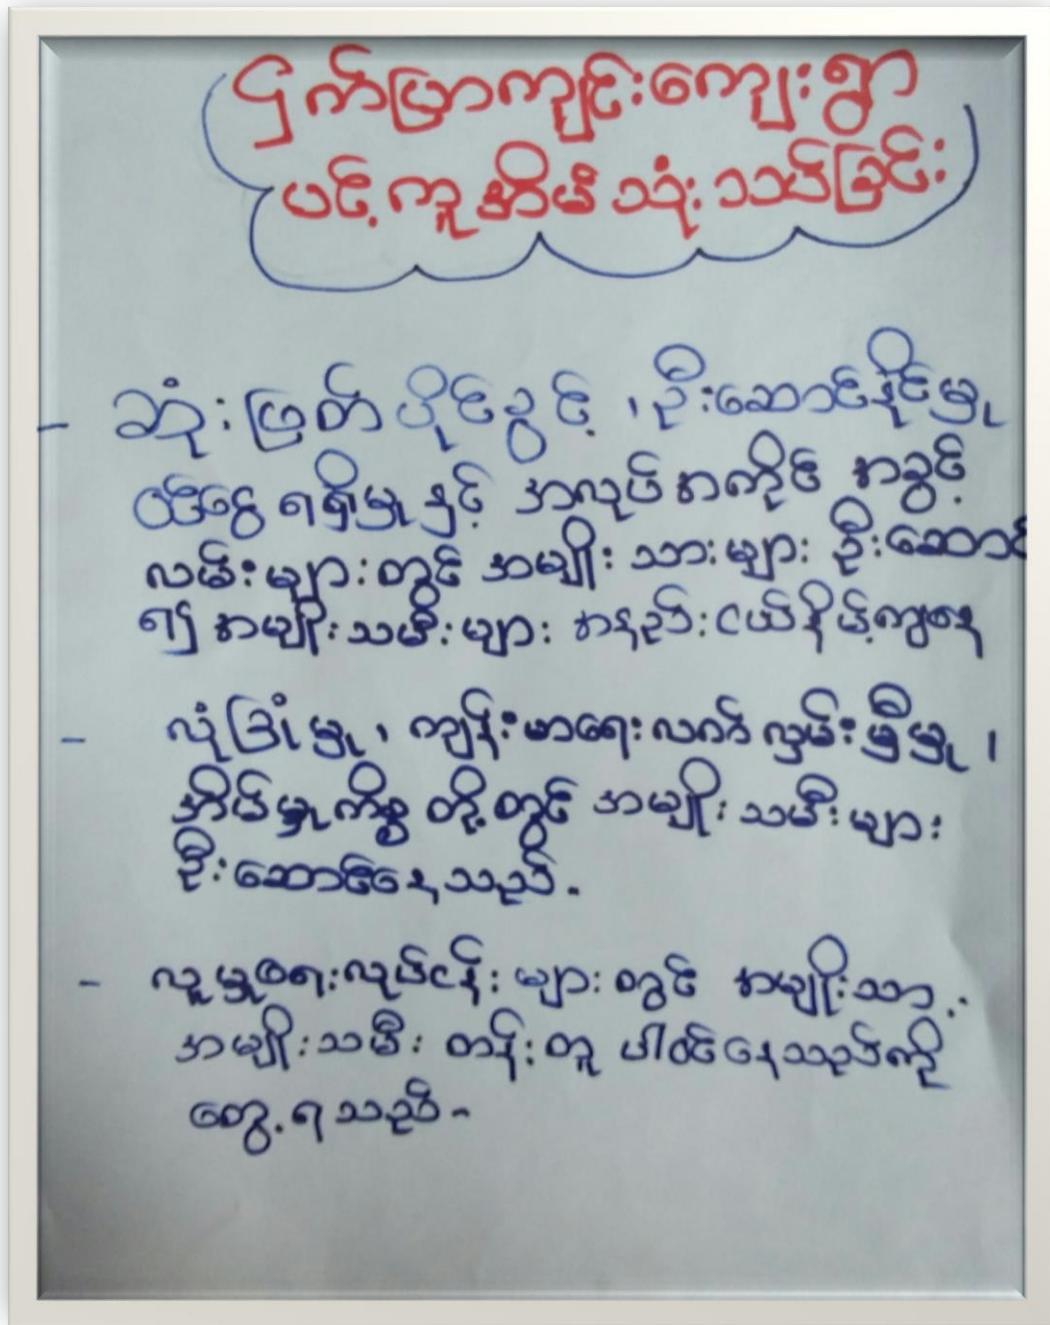 ငှက်ပြာကျင်းကျေးရွာ
ပင့်ကူအိမ်သုံးသပ်ခြင်း
- ဆုံးဖြတ်ပိုင်ခွင့်၊ ဦးဆောင်နိုင်မှု
ဝင်ငွေရရှိမှုနှင့် အလုပ်အကိုင် အခွင့်
လမ်းများတွင် အမျိုးသားများ ဦးဆောင်
၍ အမျိုးသမီးများ အနည်းငယ်နိမ့်ကျနေ
- လုံခြုံမှု၊ ကျန်းမာရေးလက်လှမ်းမှီမှု၊
အိမ်မှုကိစ္စ တို့တွင် အမျိုးသမီးများ
ဦးဆောင်နေသည်-
- လူမှုရေးလုပ်ငန်းများတွင် အမျိုးသား
အမျိုးသမီး တန်းတူ ပါဝင်နေသည်ကို
တွေ့ရသည်-